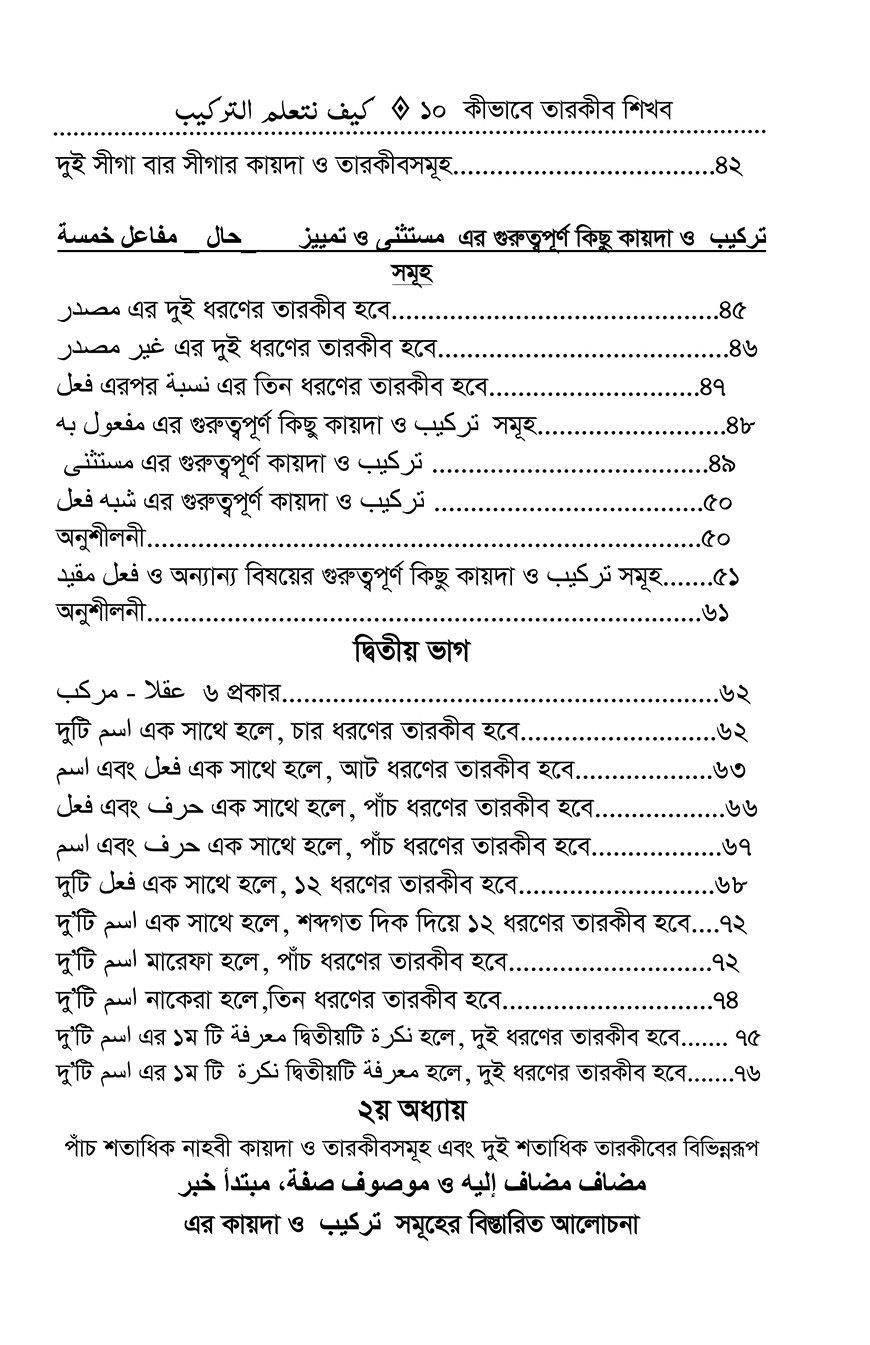 كيف نتعلم التركيب ◊ ১০ কীভাবে তারকীব শিখব
দুই সীগা বার সীগার কায়দা ও তারকীবসমূহ....................................৪২
مفاعل خمسة _ حال _ تمييز ও مستثنى এর গুরুত্বপূর্ণ কিছু কায়দা ও تركيب
সমূহ
مصدر এর দুই ধরণের তারকীব হবে.............................................৪৫
غير مصدر এর দুই ধরণের তারকীব হবে........................................৪৬
فعل এরপর نسبة এর তিন ধরণের তারকীব হবে.............................৪৭
مفعول به এর গুরুত্বপূর্ণ কিছু কায়দা ও تركيب সমূহ..........................৪৮
مستثنى এর গুরুত্বপূর্ণ কায়দা ও تركيب ......................................৪৯
شبه فعل এর গুরুত্বপূর্ণ কায়দা ও تركيب .....................................৫০
অনুশীলনী............................................................................৫০
فعل مقيد ও অন্যান্য বিষয়ের গুরুত্বপূর্ণ কিছু কায়দা ও تركيب সমূহ.......৫১
অনুশীলনী............................................................................৬১
দ্বিতীয় ভাগ
مركب - عقلا ৬ প্রকার............................................................৬২
দুটি اسم এক সাথে হলে, চার ধরণের তারকীব হবে...........................৬২
اسم এবং فعل এক সাথে হলে, আট ধরণের তারকীব হবে...................৬৩
فعل এবং حرف এক সাথে হলে, পাঁচ ধরণের তারকীব হবে..................৬৬
اسم এবং حرف এক সাথে হলে, পাঁচ ধরণের তারকীব হবে..................৬৭
দুটি فعل এক সাথে হলে, ১২ ধরণের তারকীব হবে...........................৬৮
দু’টি اسم এক সাথে হলে, শব্দগত দিক দিয়ে ১২ ধরণের তারকীব হবে....৭২
দু’টি اسم মারেফা হলে, পাঁচ ধরণের তারকীব হবে............................৭২
দু’টি اسم নাকেরা হলে,তিন ধরণের তারকীব হবে.............................৭৪
দু’টি اسم এর ১ম টি معرفة দ্বিতীয়টি نكرة হলে, দুই ধরণের তারকীব হবে....... ৭৫
দু’টি اسم এর ১ম টি نكرة দ্বিতীয়টি معرفة হলে, দুই ধরণের তারকীব হবে.......৭৬
২য় অধ্যায়
পাঁচ শতাধিক নাহবী কায়দা ও তারকীবসমূহ এবং দুই শতাধিক তারকীবের বিভিন্নরূপ
مضاف مضاف إليه ও موصوف صفة، مبتدأ خبر
এর কায়দা ও تركيب সমূহের বিস্তারিত আলোচনা